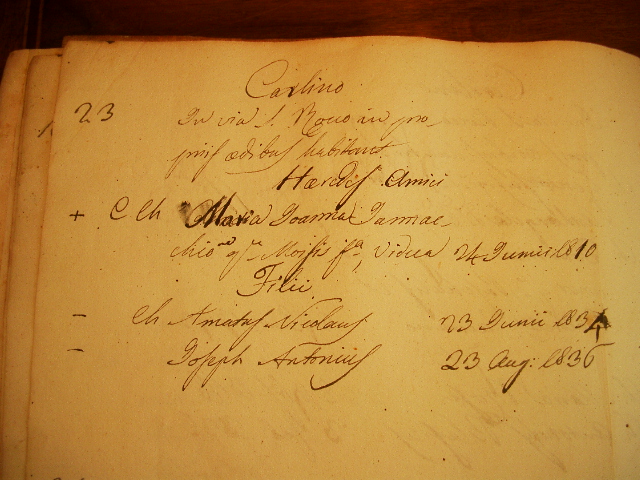 Carlino
23 In via S. Rocco in pro_
priis ædibus habitant
Hæredes Amici
+ C Ch Maria Joanna Iannac_
chio ne q m Moisis f a, Vidua 24 Junii 1810
Filii
- Ch Amatus Nicolaus 23 Junii 1834
- Joseph Antonius 23 Aug: 1836